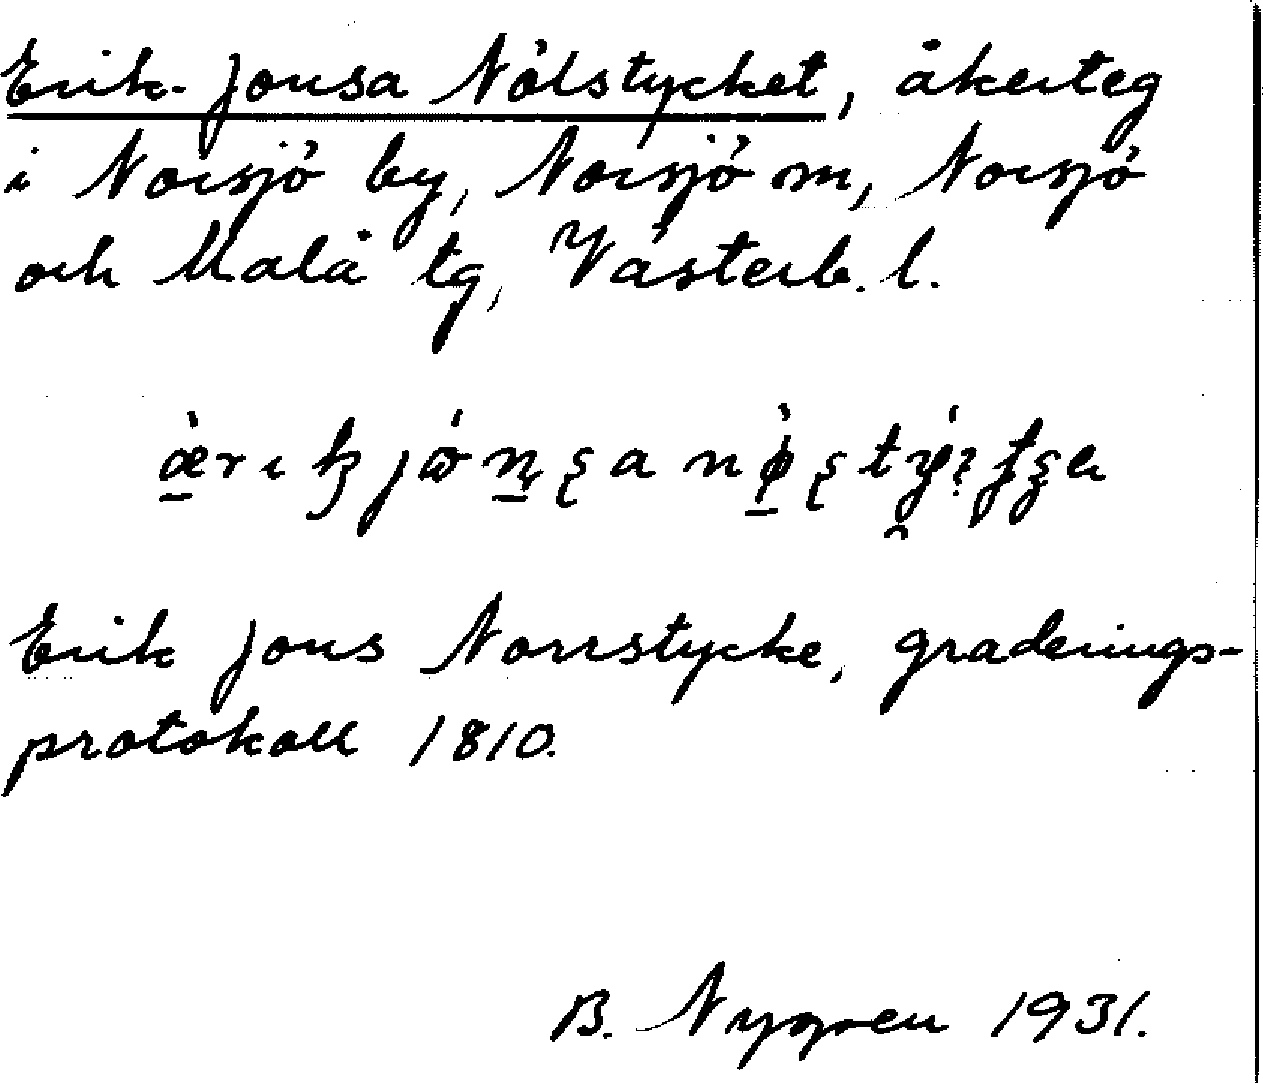 Erik-Jonsa Nölstycket, åkerteg
i Norsjö by, Norsjö sn, Norsjö
och Malå tg, Västerb. l.
Erik Jons Norrstycke, graderings-
protokoll 1810.
B. Nygren 1931.